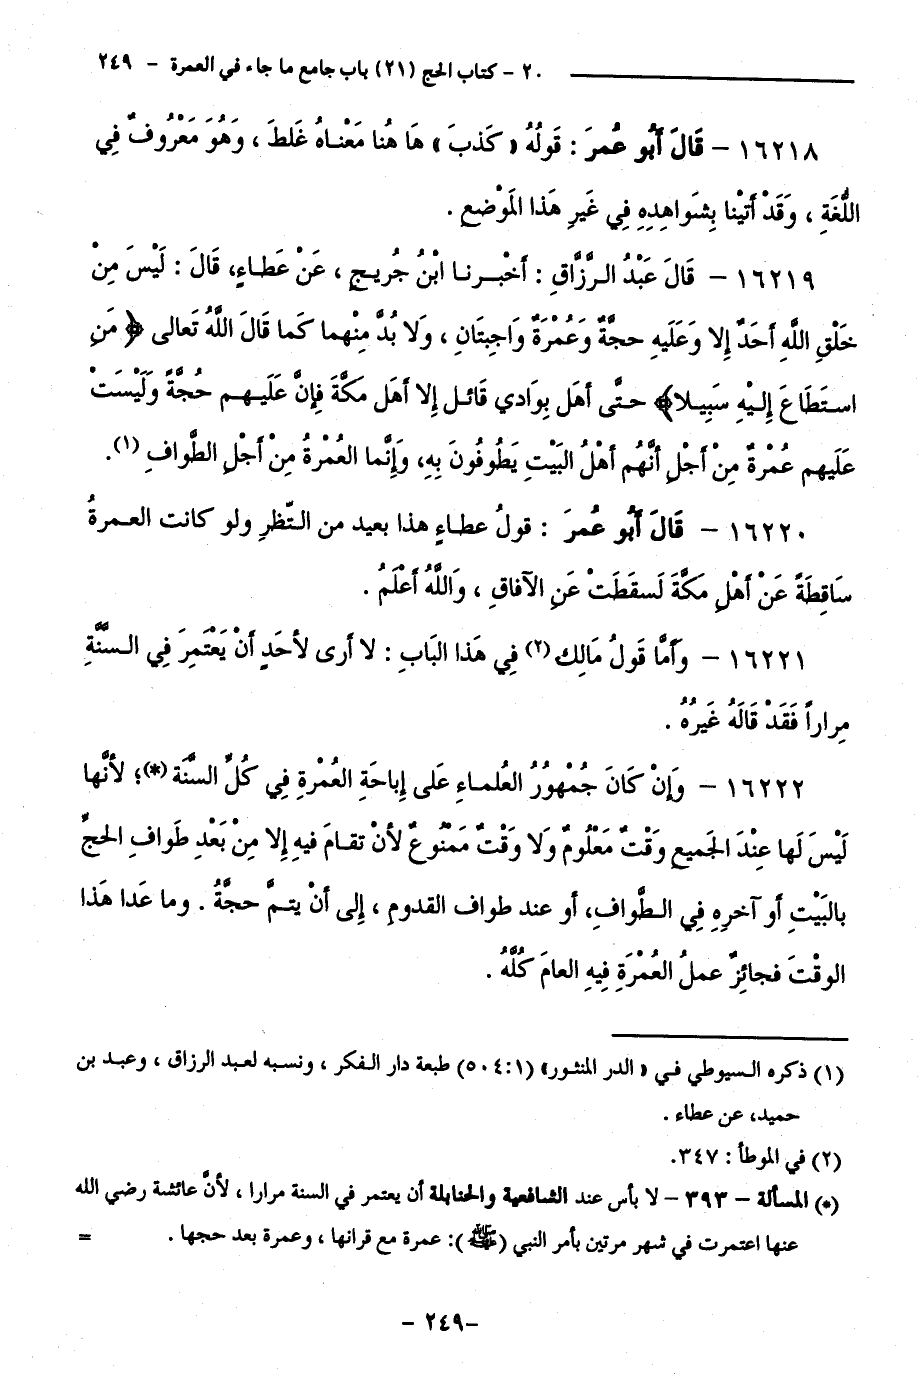 ٢٠ - كتاب الحج (٢١) باب جامع ما جاء في العمرة - ٢٤٩
١٦٢١٨ - قَالَ أَبُو عُمرَ : قَولُهُ « كَذبَ » هَا هُنا مَعْنـاهُ غَلطَ ، وَهُوَ مَعْرُوفٌ فِي
اللُّغَةِ ، وَقَدْ أَتَيْنا بِشَواهِدِهِ فِي غَيرِ هَذا المَوْضعِ .
١٦٢١٩ - قَالَ عَبْدُ الـرَّزَّاقِ : أخْبـرنـا ابْنُ جُريـجٍ ، عَنْ عَطـاءٍ، قَالَ : لَيْسَ مِنْ
خَلْقِ اللَّهِ أحَدٌ إلا وَعَلَيهِ حجَّةٌ وَعُمْرَةٌ وَاجِبتَانِ ، وَلا بُدَّ مِنْهما كَما قَالَ اللَّهُ تَعالى ﴿ مَنِ
اسـتَطَاعَ إِلـيْهِ سَبِيـلا﴾ حـتَّى أهَل بِوَادي قَائـل إلا أهَل مَكَّةَ فإنَّ عَلَيـهـم حُجَّةً وَلَيْسَتْ
عَلَيهم عُمْرةٌ مِنْ أَجْلِ أنَّهُم أهْلُ البَيْتِ يَطُوفُونَ بِهِ، وَإنَّما العُمْرةُ مِنْ أجْلِ الطَّوافِ (١).
١٦٢٢٠ - قَالَ أَبُو عُمرَ : قولُ عطـاءٍ هذا بعيد من النّظرِ ولو كانت العـمرةُ
سَاقِطَةً عَنْ أهْلِ مَكَّةَ لَسقَطَتْ عَنِ الآفاقِ ، وَاللَّهُ أعْلَمُ .
١٦٢٢١ - وَأمَّا قَولُ مَالِك (٢) فِي هَذا البَابِ : لا أرى لأحَدٍ أنْ يَعْتَمِرَ فِي الـسَّنَّةِ
مِراراً فَقَدْ قَالَهُ غَيرُهُ .
١٦٢٢٢ - وَإنْ كَانَ جُمْهُورُ العُلمـاءِ عَلى إباحَةِ العُمْرةِ فِي كُلِّ السنَّةَ (*)؛ لأنَّها
لَيْسَ لَها عِنْدَ الجَميعِ وَقْتٌ مَعْلُومٌ وَلا وَقْتٌ مَمْنُوعٌ لأنْ تقـامَ فيهِ إلا مِنْ بَعْدِ طَوافِ الحجِّ
بالبَيْتِ أو آخرِهِ فِي الـطَّوافِ، أو عند طواف القدومِ ، إلى أنْ يتـمَّ حجَّةُ . وما عَدا هَذا
الوقْتَ فَجائِزٌ عملُ العُمْرَةِ فِيهِ العامَ كُلَّهُ .
(١) ذكره السيوطي فـي « الدر المنثـور» (١:٥٠٤) طبعة دار الـفكر ، ونسبه لعبد الرزاق ، وعبـد بن
حميد، عن عطاء .
(٢) في الموطأ : ٣٤٧.
(*) المسألة - ٣٩٣ - لا بأس عند الشافعية والحنابلة أن يعتمر في السنة مرارا ، لأنَّ عائشة رضي الله
عنها اعتمرت في شهر مرتين بأمر النبي (ﷺ): عمرة مع قرانها ، وعمرة بعد حجها . =
-٢٤٩ -